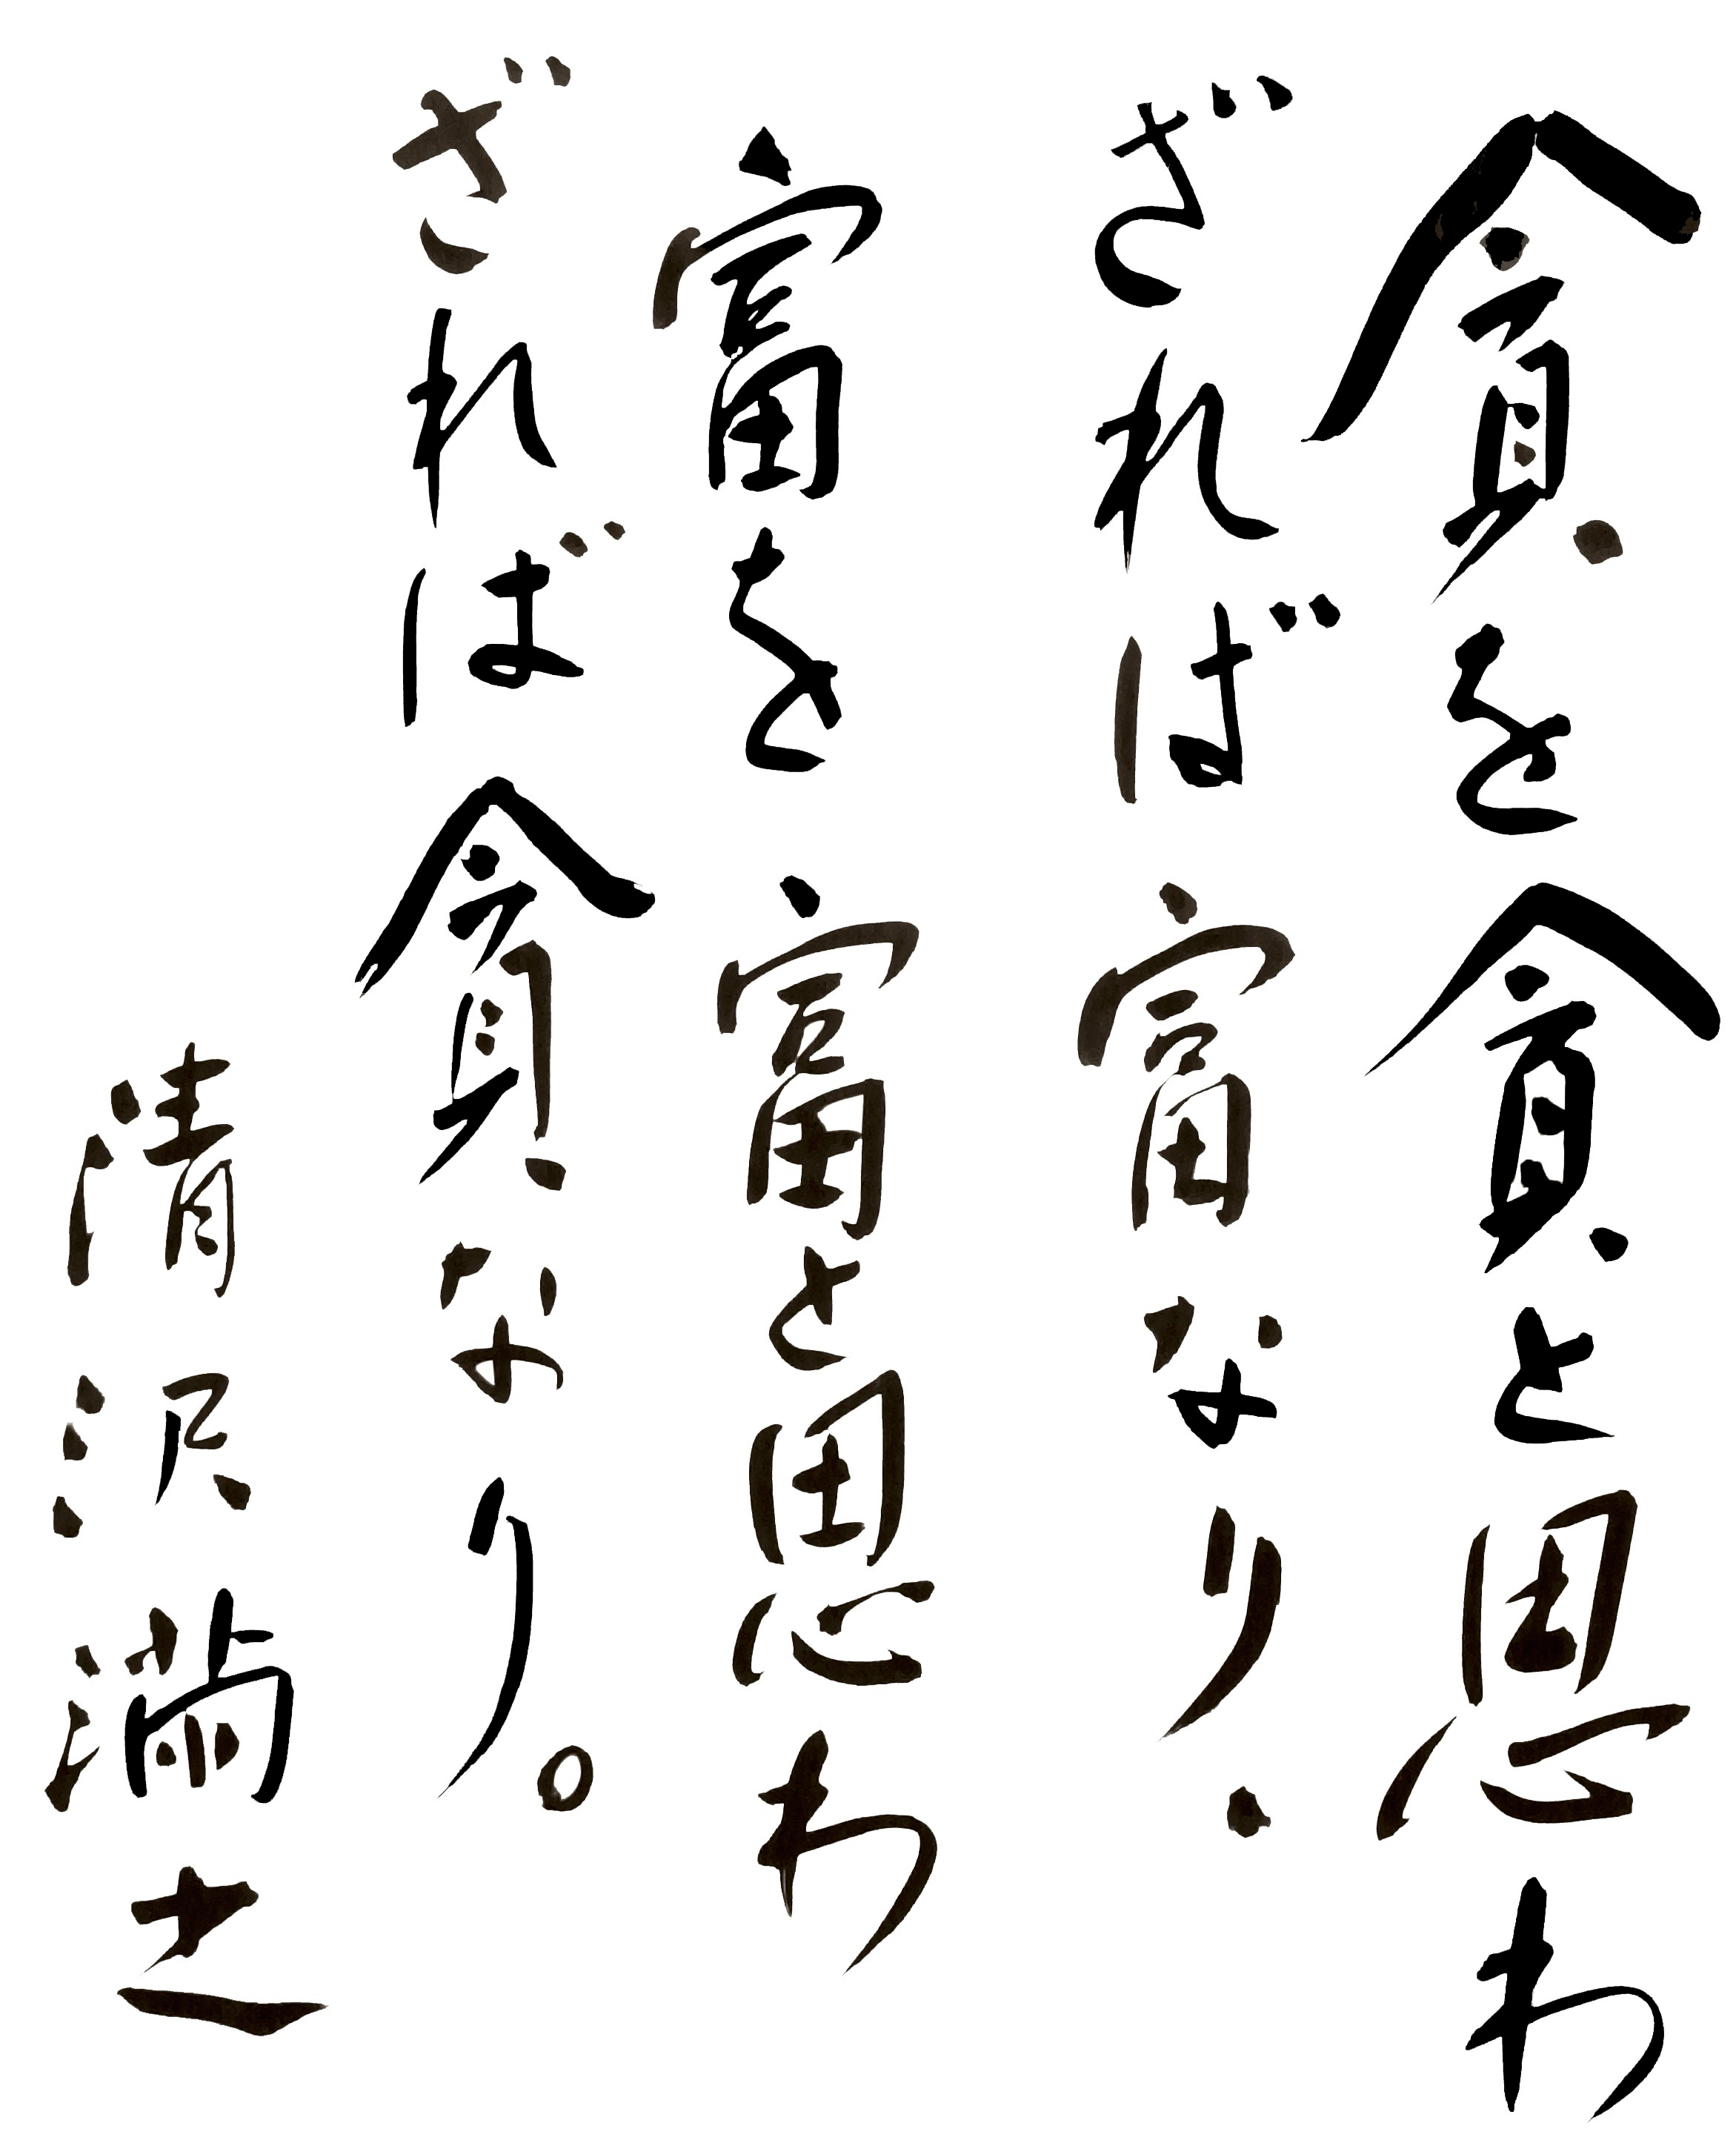 貪を貪と思わ
ざれば富なり、
富を富と思わ
ざれば貪なり。
清沢満之